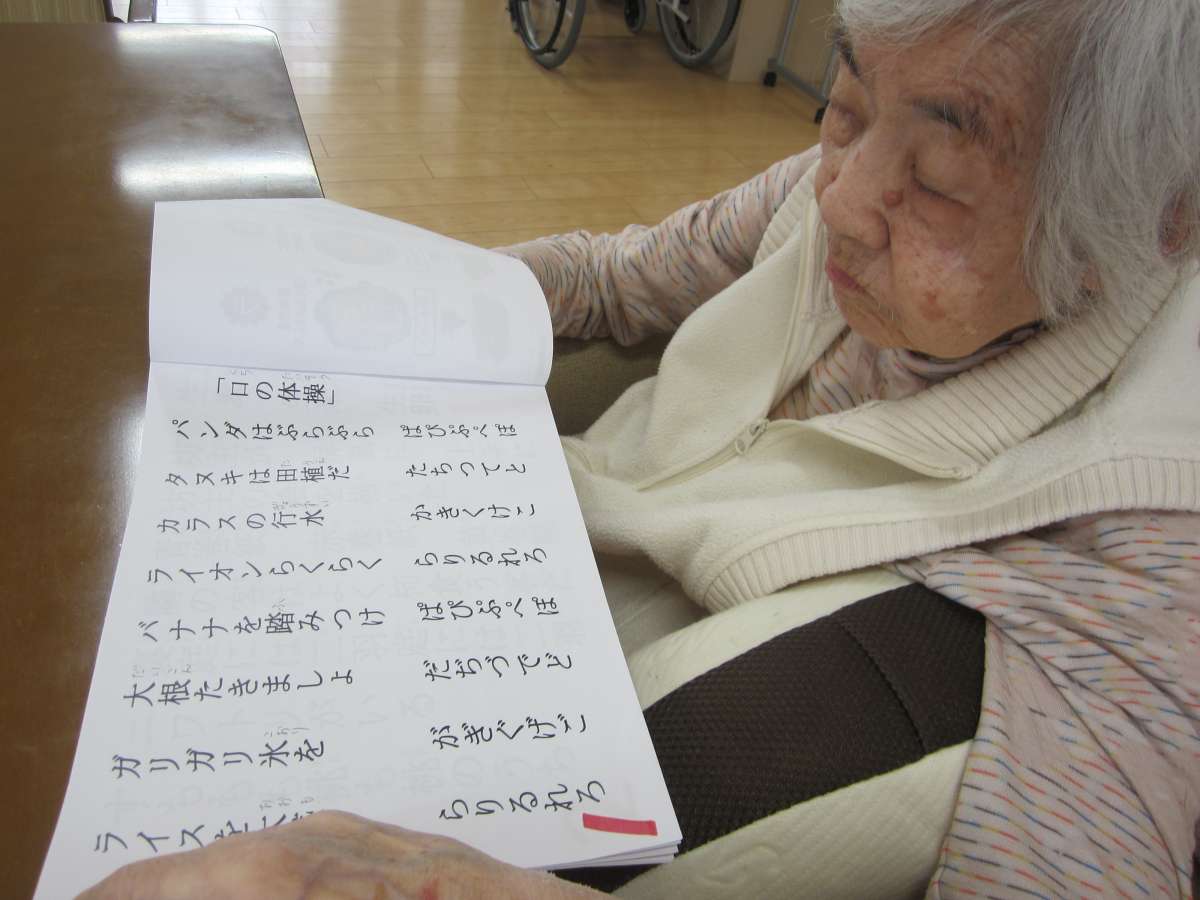 「口の体操」
パンダはぶらぶら ぱぴぷぺぽ
タヌキは田植だ たちつてと
カラスの行水 かきくけこ
ライオンらくらく らりるれろ
バナナを踏みつけ ぱぴぷぺぽ
大根だきましょ だぢづでど
ガリガリ氷を がぎぐげご
ライスを らりるれろ